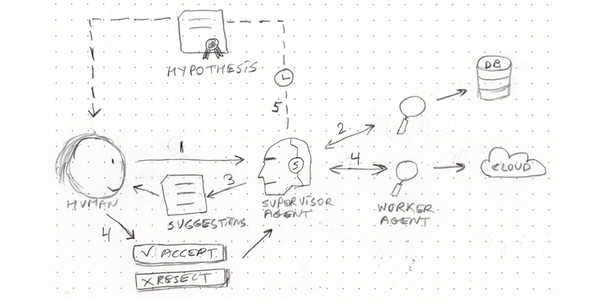 HYPOTHESIS
5
DB
1
2
3
4
S
CLOUD
HUMAN
SUGGESTIONS
SUPERVISOR
AGENT
WORKER
AGENT
4
V ACCEPT
X REJECT